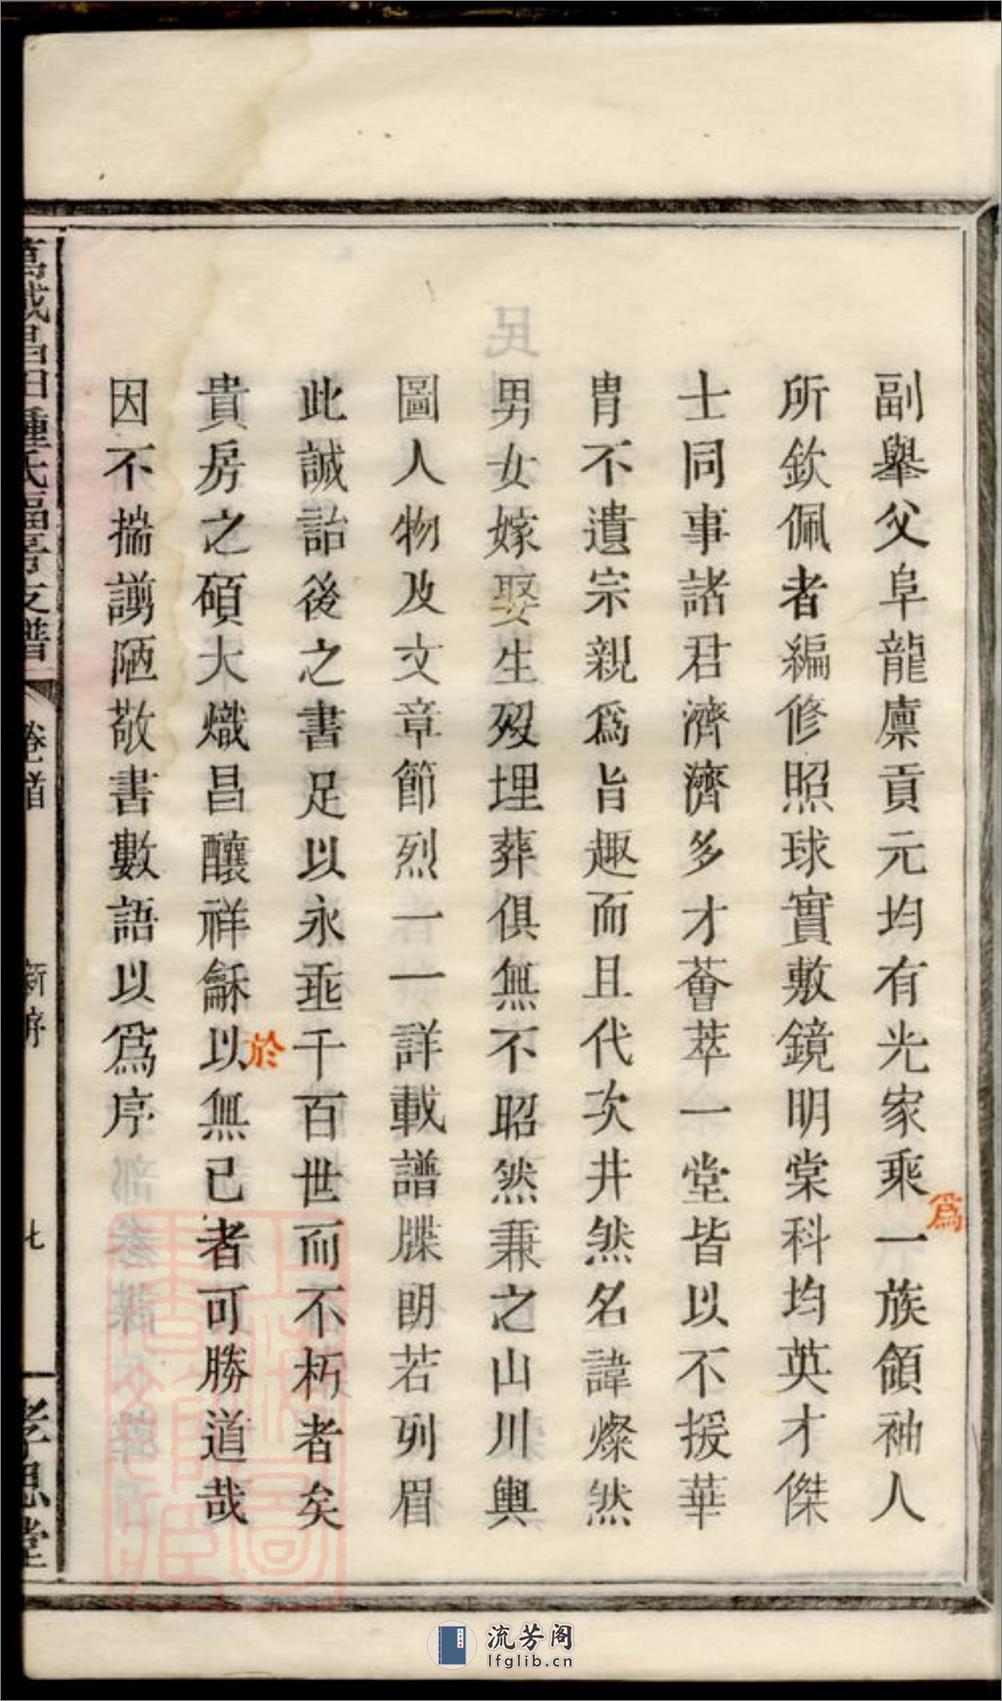 副舉父阜龍廩貢元均有光家乘一族領袖人
爲
所欽佩者編修照球實敷鏡明棠科均英才傑
士同事諸君濟濟多才薈萃一堂皆以不援華
胄不遺宗親爲旨趣而且代次井然名諱燦然
男女嫁娶生歿埋葬俱無不昭然兼之山川輿
圖人物及文章節烈一一詳載譜牒朗若列眉
此誠詒後之書足以永垂千百世而不朽者矣
於
貴房之碩大熾昌釀祥龢以無已者可勝道哉
因不揣謭陋敬書數語以爲序
萬載昌田鍾氏福房支譜
卷首
新序
七
孝思堂
流芳阁
lfglib.cn